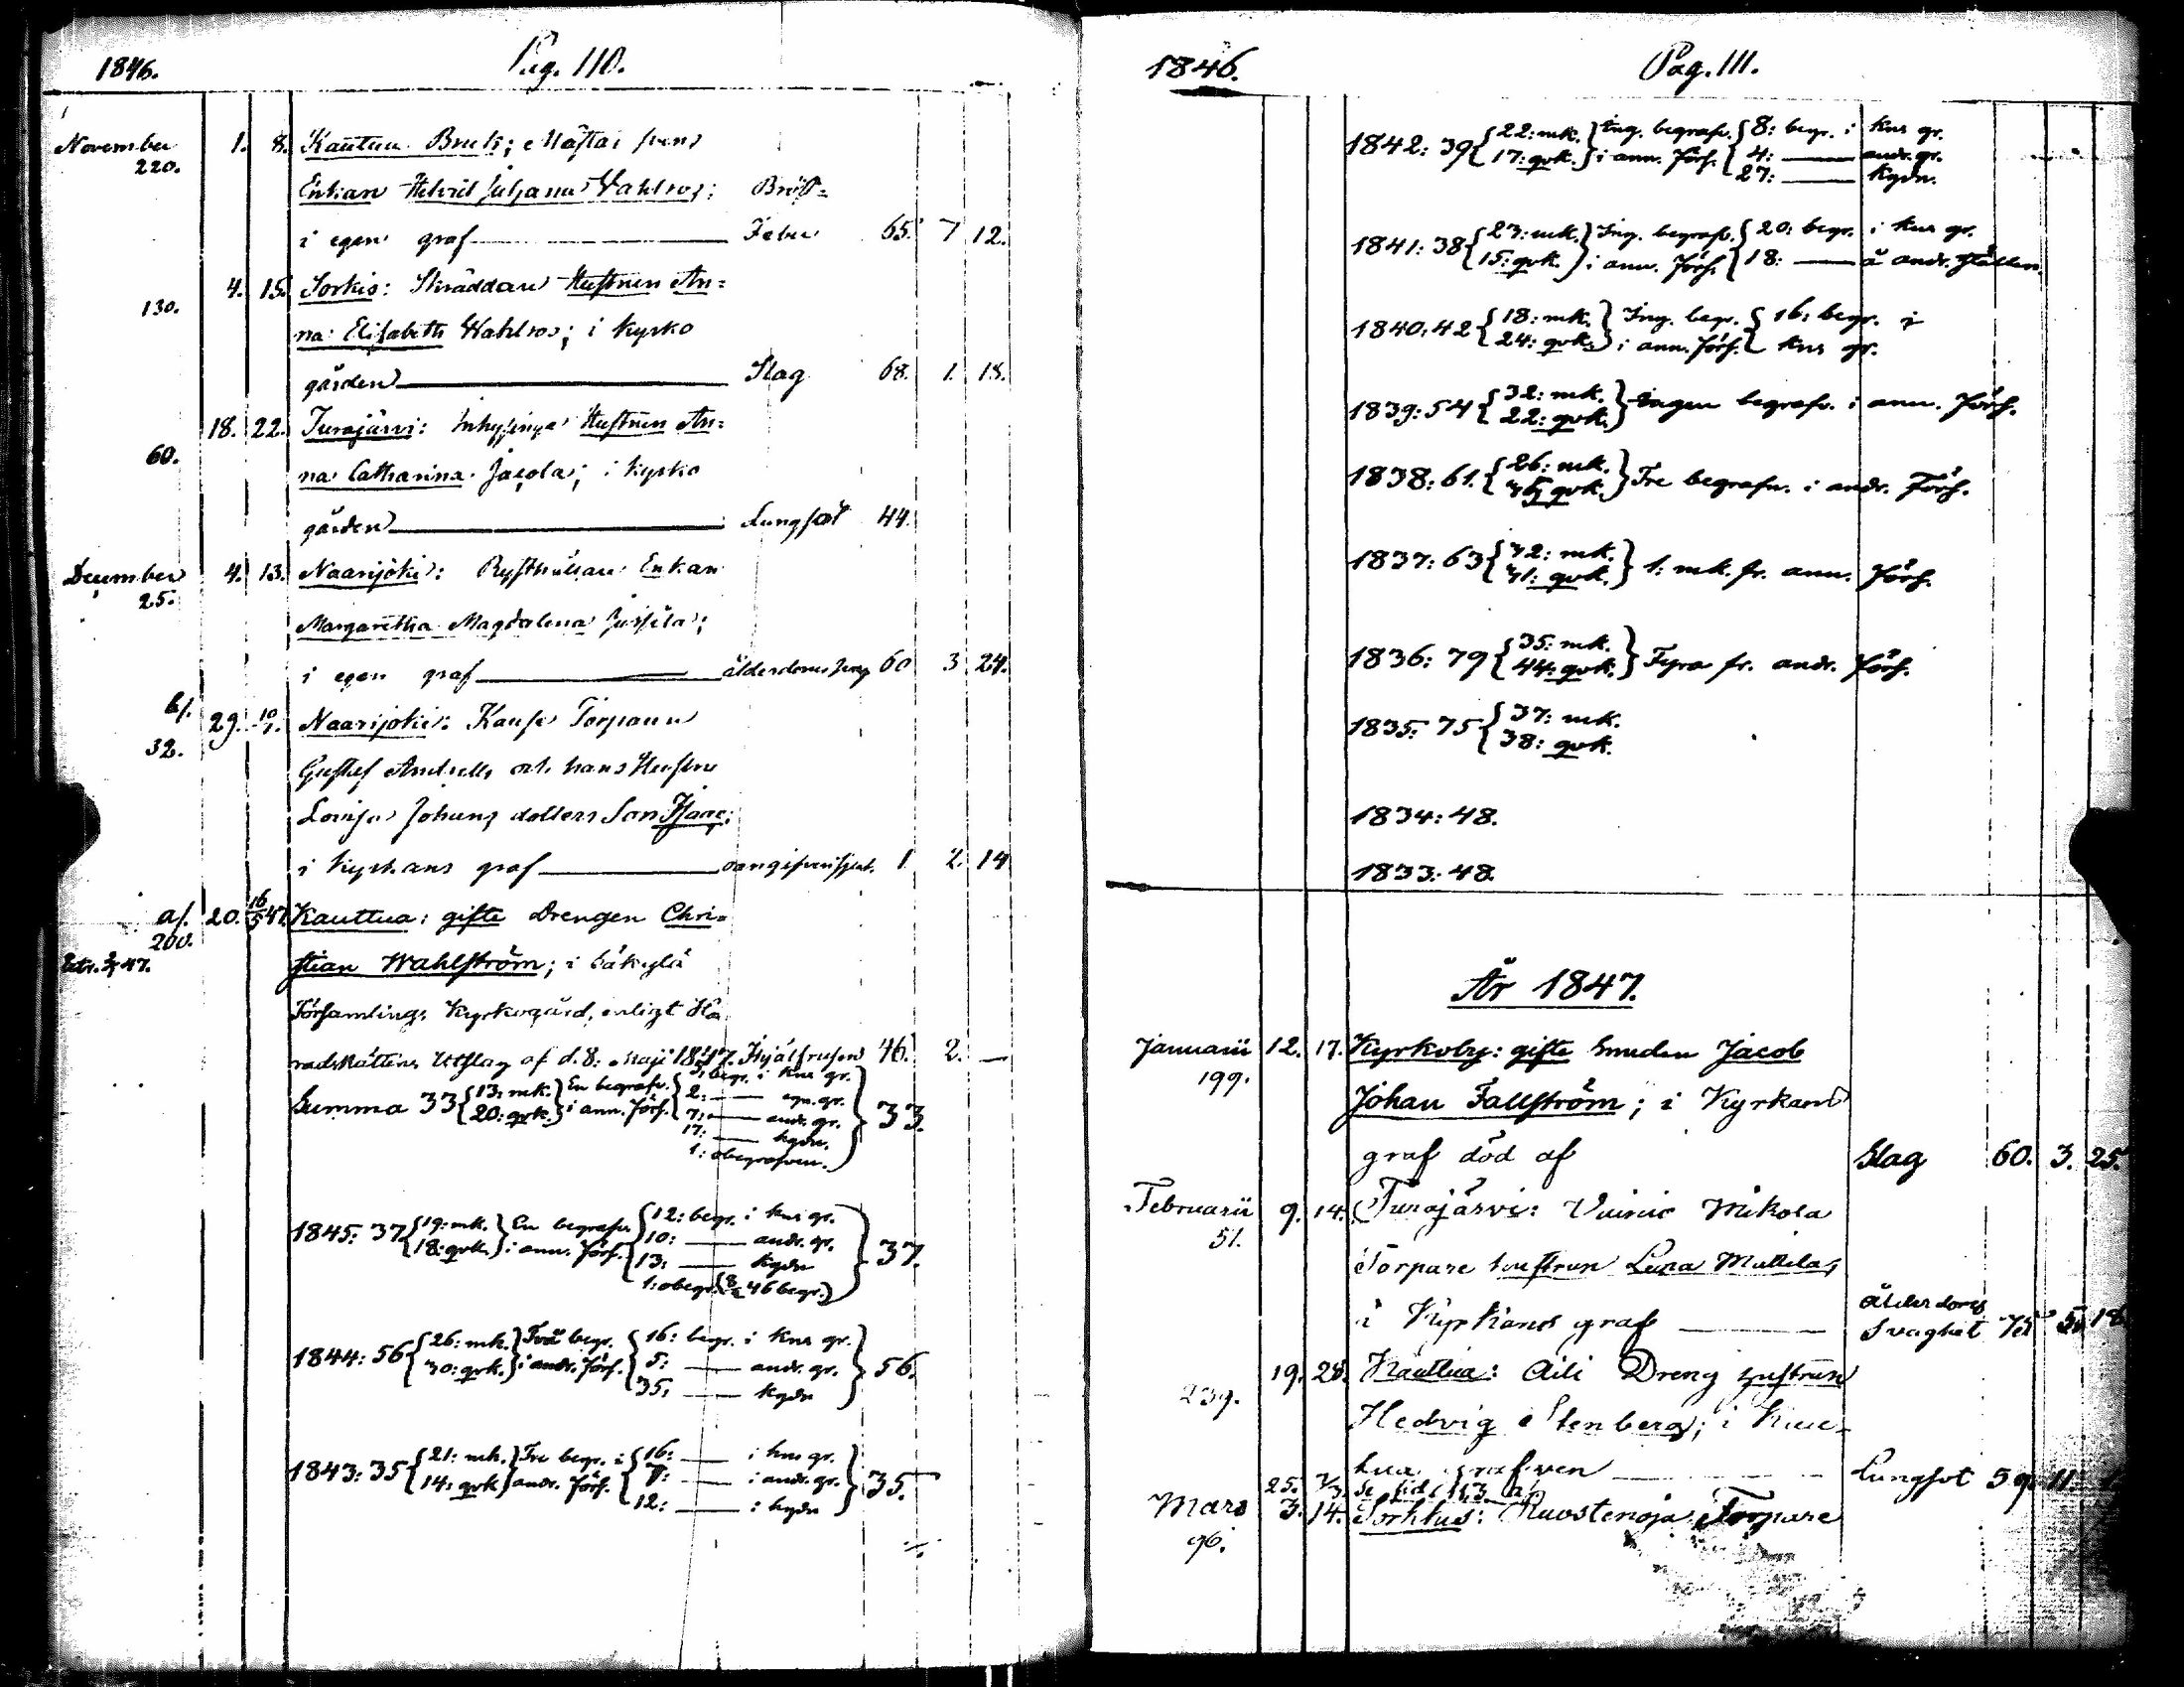 1846. Pag. 110.
November 1. 8. Kauttua Bruk; Mästar svens
220.
Enkan Helvid Juljana Wahlros; Bröst=
i egen graf Feber 65. 7 12.
4. 15. Sorkis: Skräddare Hustrun An=
130.
na Elisabeth Wahlros; i Kyrko
gården Slag 68. 1. 18.
18. 22. Turajärvi: Inhysinge Hustrun An=
60.
na Catharina Jacola; i Kyrko
gården Lungsot 44.
December 4. 13. Naarijoki: Rusthållare Enkan
25.
Margaretha Magdalena Jussila;
i egen graf ålderdoms 60 3 24.
b/. 29. 10/1. Naarijoki: Torparen
32.
Gustaf och hans Hustru
Lovisa Johans dotters Son Isaac;
i Kyrkans graf oangifven sjukd. 1 2. 14
a/. 20. 16/5 47. Kauttua: gifte Drengen Chri=
200.
Extr. 47. stian Wahlström; i Säkylä
Församlings Kyrkogård, enligt Hä
radsRättens Utslag af d. 8. Maji 1847. Ihjälfrusen 46. 2. —
Summa 33 { 13: mk. } En begrafv. { 5: begr. i kns gr.
20: qvk. i ann. förs. 2: — egn. gr.
7: — andr. gr. } 33.
17: — kgdn.
1: obegrafven.
1845: 37 { 19: mk. } En begrafv. { 12: begr. i kns gr.
18: qvk. i ann. förs. 10: — andr. gr. } 37.
13: — kgdn
1: obegr. ( 46 begr.)
1844: 56 { 26: mk. } Två begr. { 16: begr. i kns gr.
30: qvk. i andr. förs. 5: — andr. gr. } 56.
35: — kgdn
1843: 35 { 21: mk. } Tre begr. i { 16: — i kns gr.
14: qvk. andr. förs. 7: — i andr. gr. } 35.
12: — i kgdn
1846. Pag. 111.
1842: 39 { 22: mk. } Ing. begrafv. { 8: begr. i kns gr.
17: qvk. i ann. förs. 4: — andr. gr.
27: — kgdn.
1841: 38 { 23: mk. } Ing. begrafv. { 20: begr. i kns gr.
15: qvk. i ann. förs. 18: — å andr. ställen
1840: 42 { 18: mk. } Ing. begr. { 16: begr. i
24: qvk. i ann. förs. kns gr.
1839: 54 { 32: mk. } Ingen begrafv. i ann. förs.
22: qvk.
1838: 61. { 26: mk. } Tre begrafv. i andr. Förs.
35: qvk.
1837: 63 { 32: mk. } 1: mk. fr. ann. förs.
31: qvk.
1836: 79 { 35: mk. } Fyra fr. andr. förs.
44: qvk.
1835: 75 { 37: mk.
38: qvk.
1834: 48.
1833: 48.
År 1847.
Januarii 12. 17. Kyrkoby: gifte Smeden Jacob
199.
Johan Fallström; i Kyrkans
graf död af Slag 60. 3. 25.
Februarii 9. 14. Turajärvi: Mikola
51.
Torpare hustrun Lena Mattila;
i Kyrkans graf ålderdoms
Svaghet 5. 18
19. 28. Kauttua: Dreng hustrun
239.
Hedvig Stenberg; i Kau=
tua grafven Lungsot 59. 11.
25. 7/3. Se sid. 113 a/.
Mars 3. 14. Sorkkis: Ruostenoja Torpare
96.